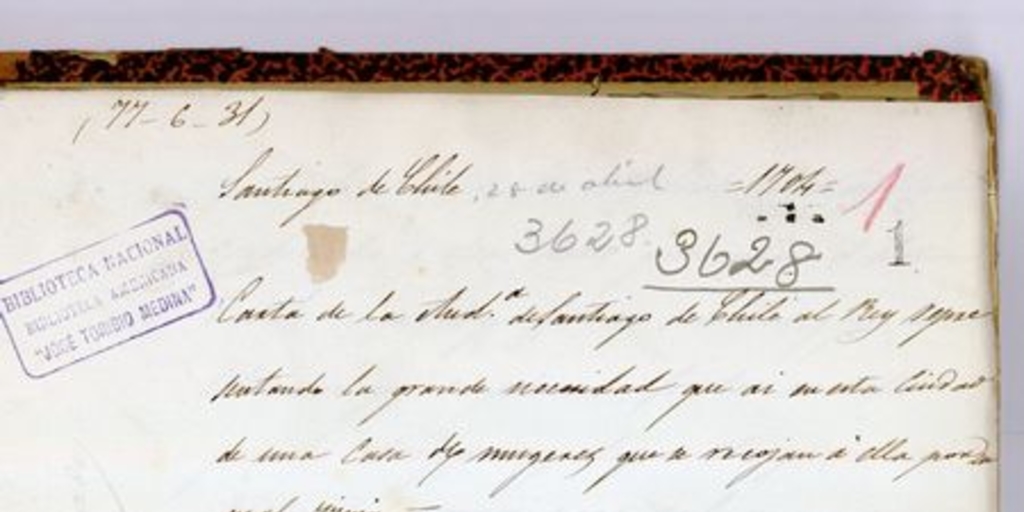 (77-6-31)
Santiago de Chile, 28 de abril =1704= 1
3628 3628 1
BIBLIOTECA NACIONAL
BIBLIOTECA AMERICANA
"JOSÉ TORIBIO MEDINA"
Carta de la Aud.ª de Santiago de Chile al Rey repre
sentando la grande necesidad que ai en esta Ciudad
de una Casa de mugeres que se recojan á ella